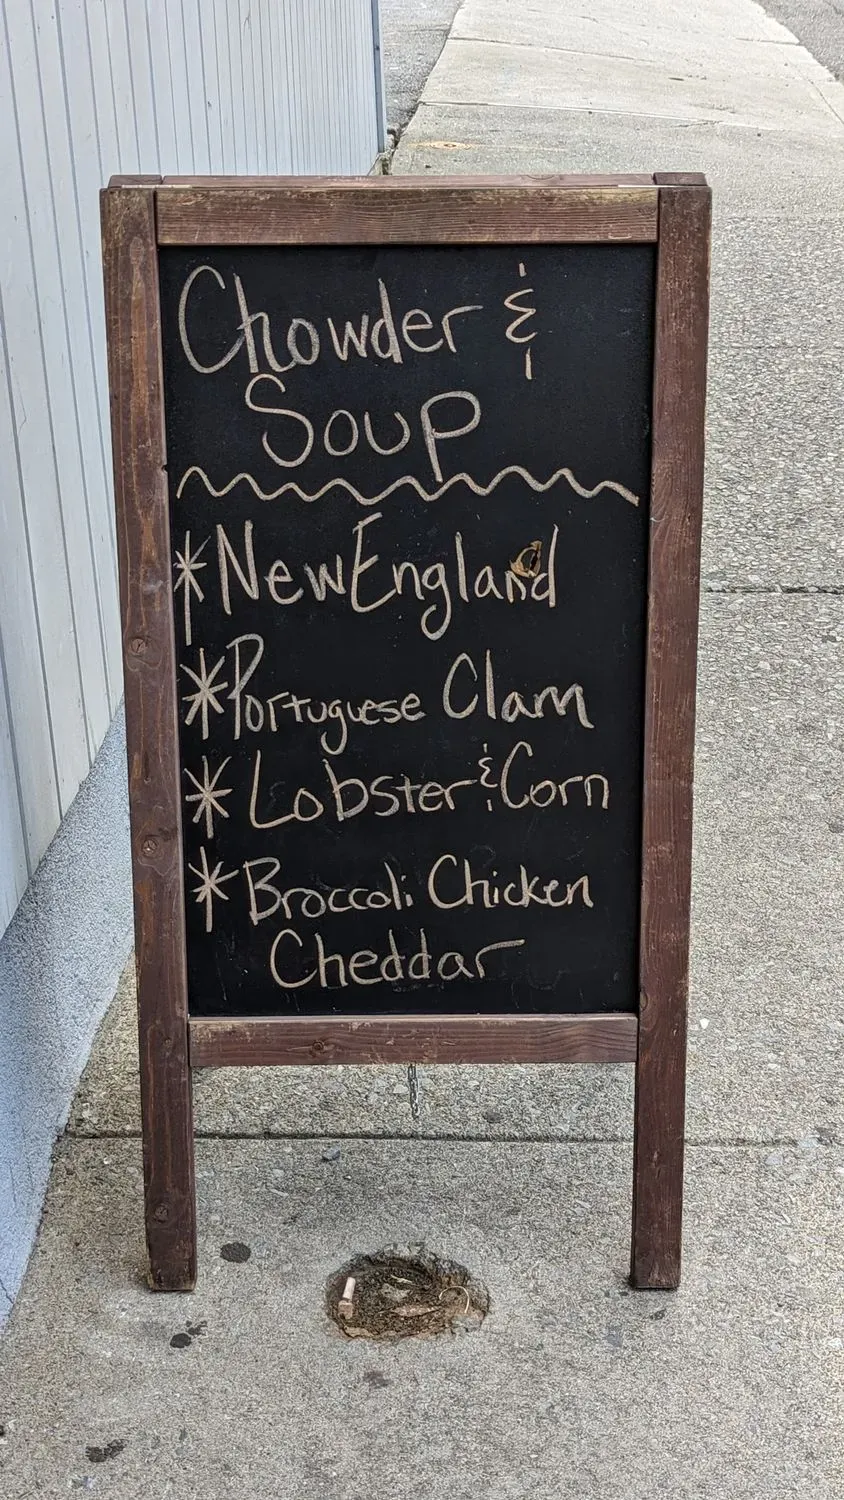 Chowder &
Soup
*New England
*Portuguese Clam
*Lobster & Corn
*Broccoli Chicken
Cheddar